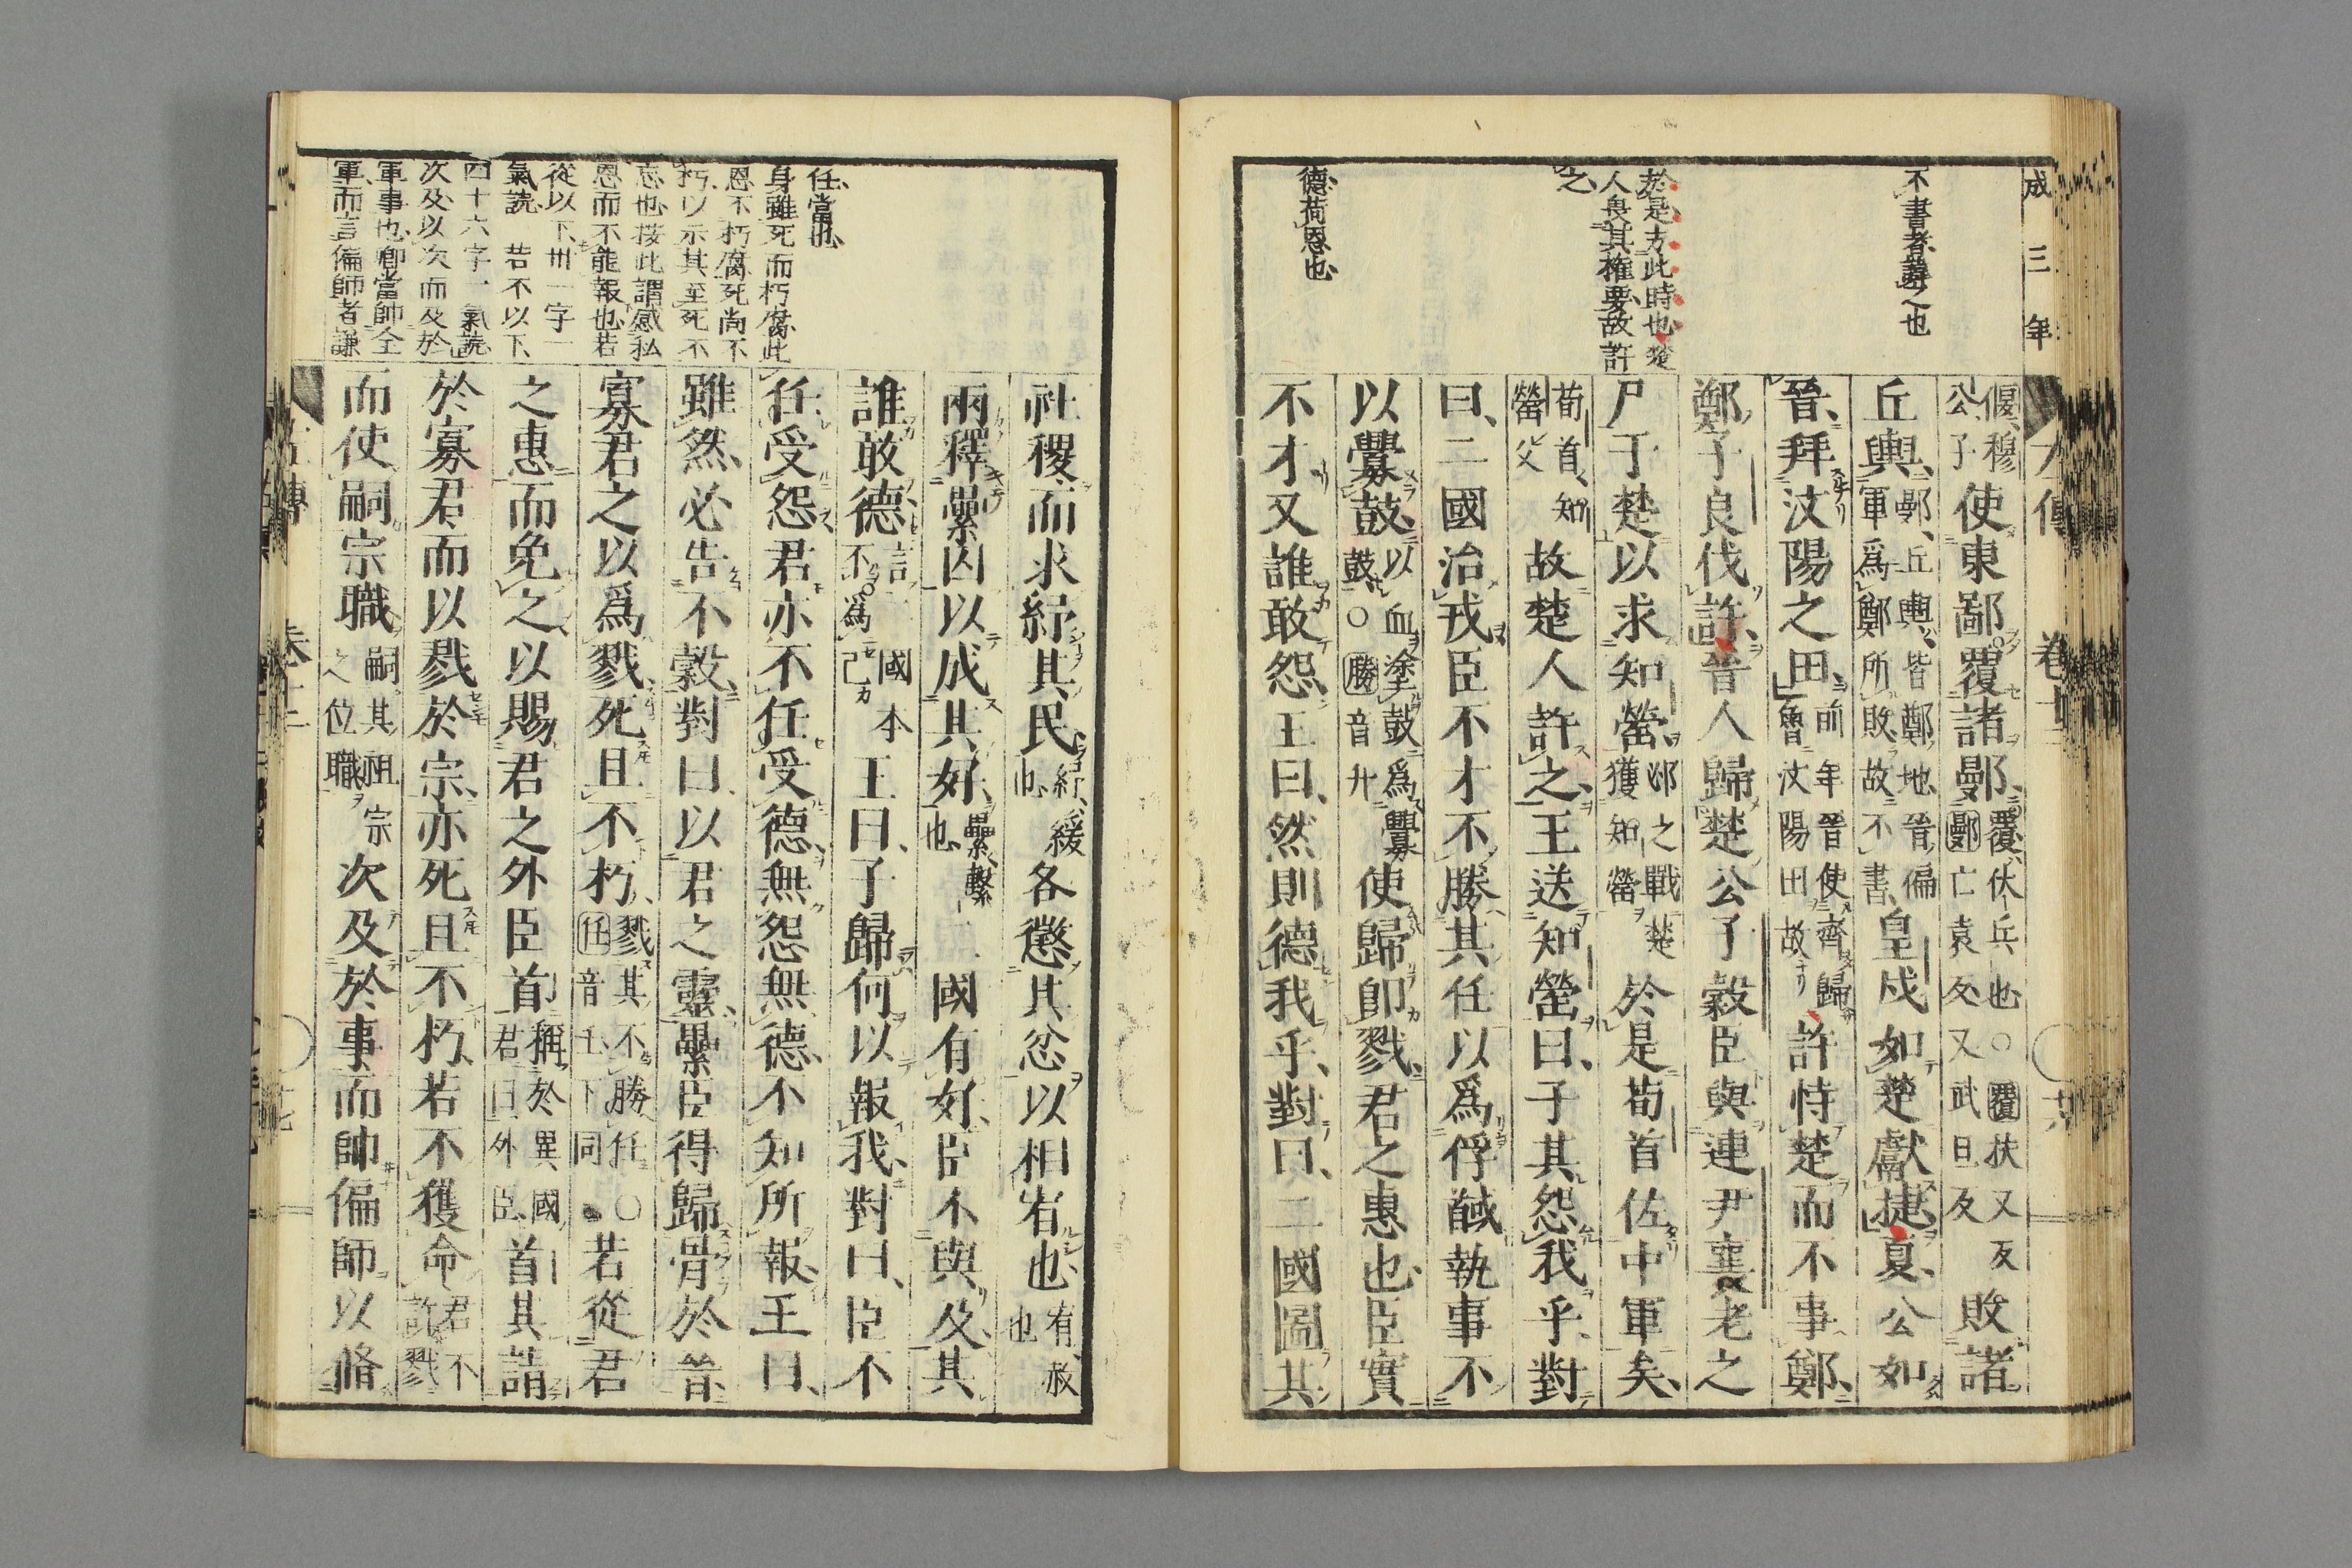 成三年
不書者諱之也
於是方此時也楚
人畏其權要故許
之
德荷恩也
偃穆
公子
使東鄙覆諸鄤
覆伏兵也○覆扶又反
鄤亡袁反又武旦反
敗諸
丘輿
鄤丘輿皆鄭地晉偏
軍爲鄭所敗故不書
皇戌如楚獻捷夏公如
晉拜汶陽之田
前年晉使齊歸
魯汶陽田故
許恃楚而不事鄭
鄭子良伐許晉人歸楚公子穀臣與連尹襄老之
尸于楚以求知罃
邲之戰楚
獲知罃
於是荀首佐中軍矣
荀首知
罃父
故楚人許之王送知罃曰子其怨我乎對
曰二國治戎臣不才不勝其任以爲俘馘執事不
以釁鼓
以血塗鼓爲釁
鼓○勝音升
使歸卽戮君之惠也臣實
不才又誰敢怨王曰然則德我乎對曰二國圖其
任當也
身雖死而朽腐此
恩不朽腐死尚不
朽以示其至死不
忘也按此謂感私
恩而不能報也若
從以下卅一字一
氣読 若不以下
四十六字一氣読
次及以次而及於
軍事也卿當帥全
軍而言偏師者謙
社稷而求紓其民
紓緩
也
各懲其忿以相宥也
宥赦
也
兩釋纍囚以成其好
纍繫
也
二國有好臣不與及其
誰敢德
言二國本
不爲己
王曰子歸何以報我對曰臣不
任受怨君亦不任受德無怨無德不知所報王曰
雖然必告不穀對曰以君之靈纍臣得歸骨於晉
寡君之以爲戮死且不朽
戮其不勝任○
任音壬下同
若從君
之惠而免之以賜君之外臣首
稱於異國
君曰外臣
首其請
於寡君而以戮於宗亦死且不朽若不獲命
君不
許戮
而使嗣宗職
嗣其祖宗
之位職
次及於事而帥偏師以脩